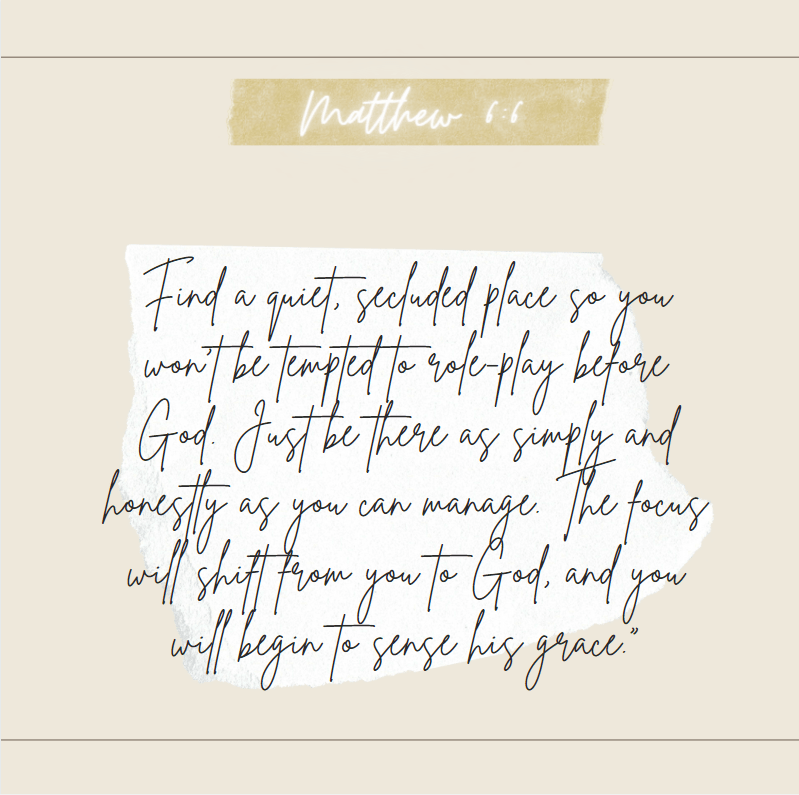 Matthew 6:6
Find a quiet, secluded place so you
won't be tempted to role-play before
God. Just be there as simply and
honestly as you can manage. The focus
will shift from you to God, and you
will begin to sense his grace."